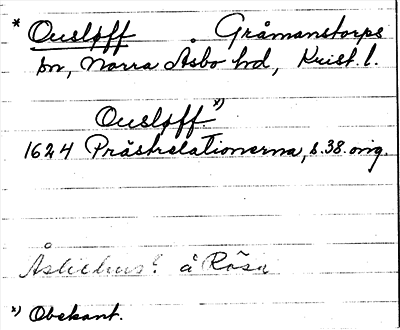 * Ouslöff Gråmanstorps
sn, Norra Åsbo hd, Krist. l.
Ouslöff. x)
1624 Prästrelationerna, s. 38. orig.
å Rösa
x) Obekant.